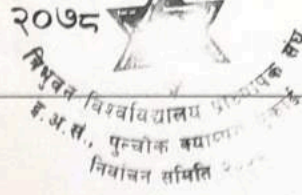 २०७८
त्रिभुवन विश्वविद्यालय प्राध्यापक संघ
इ.अ.सं., पुल्चोक क्याम्पस इकाई
निर्वाचन समिति